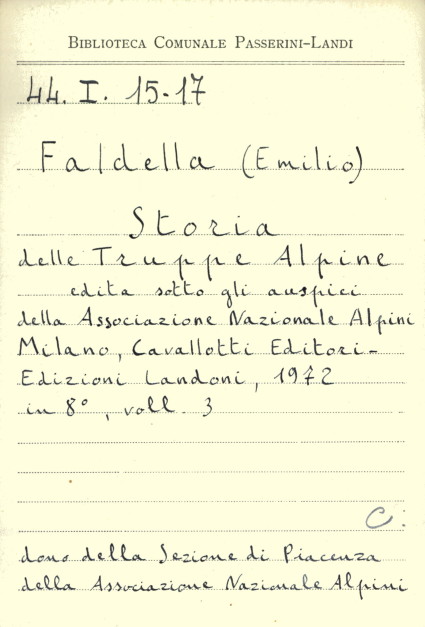 BIBLIOTECA COMUNALE PASSERINI-LANDI
44. I. 15-17
Faldella (Emilio)
Storia
delle Truppe Alpine
edita sotto gli auspici
della Associazione Nazionale Alpini
Milano, Cavallotti Editori-
Edizioni Landoni, 1972
in 8°, voll. 3
C.
dono della Sezione di Piacenza
della Associazione Nazionale Alpini